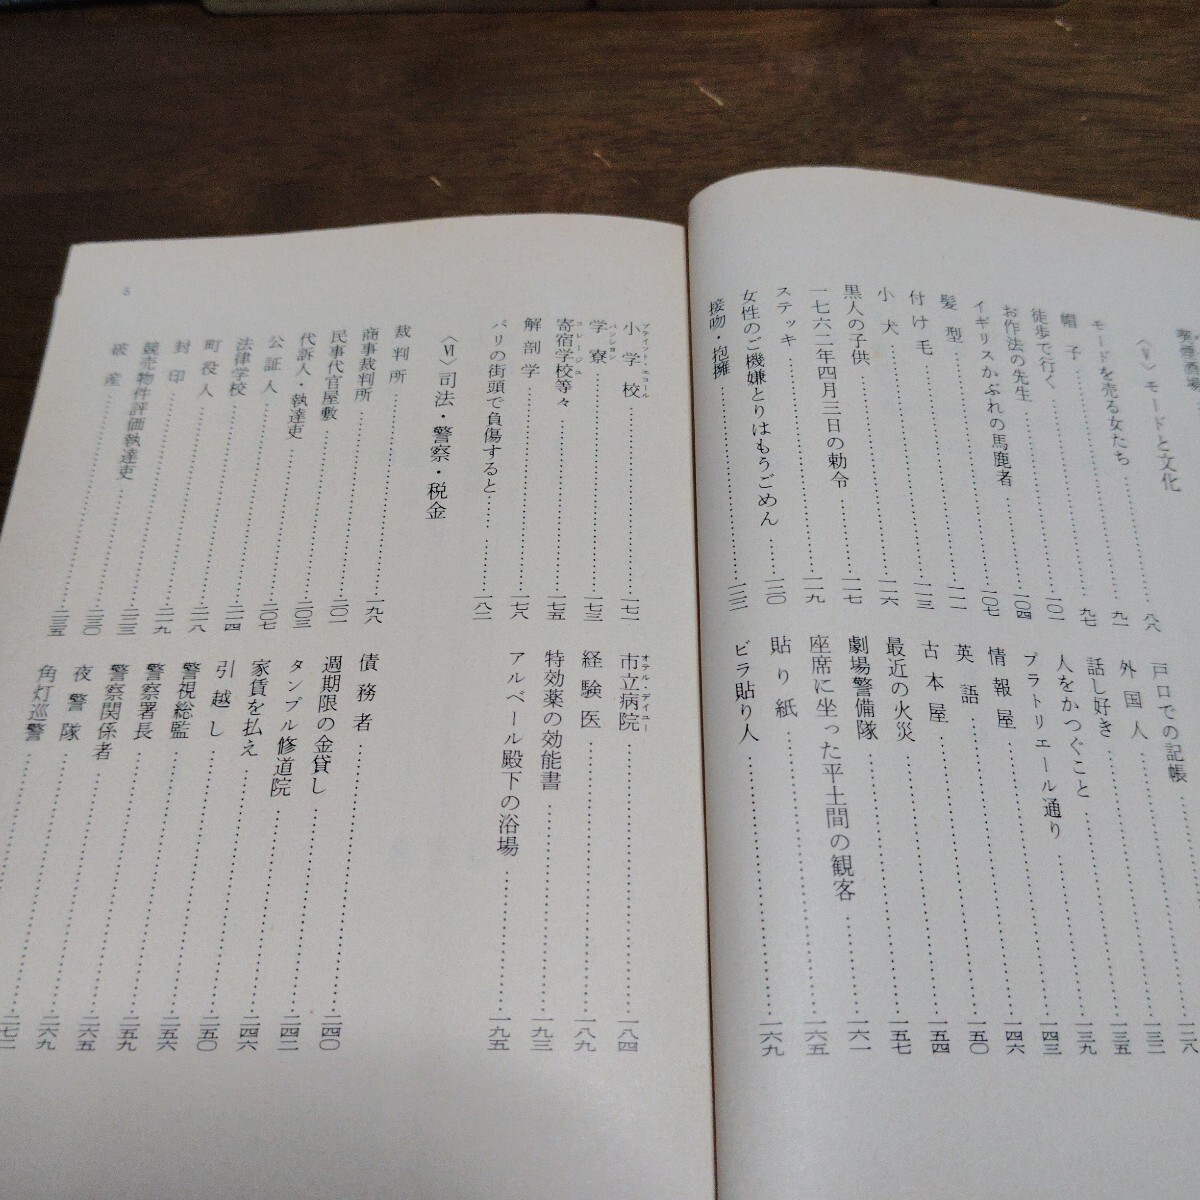 〈Ⅴ〉モードと文化
モードを売る女たち……八八
帽子……九一
徒歩で行く……九七
お作法の先生……一〇一
イギリスかぶれの馬鹿者……一〇四
髪型……一〇七
付け毛……一一一
小犬……一一三
黒人の子供……一一六
一七六二年四月三日の勅令……一一七
ステッキ……一一九
女性のご機嫌とりはもうごめん……一二〇
接吻・抱擁……一二二
戸口での記帳……一二八
外国人……一三二
話し好き……一三五
人をかつぐこと……一三九
プラトリエール通り……一四三
情報屋……一四六
英語……一五〇
古本屋……一五四
最近の火災……一五七
劇場警備隊……一六一
座席に坐った平土間の観客……一六五
貼り紙
ビラ貼り人……一六九
小学校……一七一
プティット・エコール
学寮……一七三
パンシヨン
寄宿学校等々……一七五
コレージュ
解剖学……一七八
パリの街頭で負傷すると……一八二
市立病院……一八四
オテル・デイユー
経験医……一八九
特効薬の効能書……一九三
アルベール殿下の浴場……一九五
〈Ⅵ〉司法・警察・税金
裁判所……一九八
商事裁判所
民事代官屋敷……二〇一
代訴人・執達吏……二〇三
公証人……二〇七
法律学校……二一四
町役人……二一八
封印……二一九
競売物件評価執達吏……二二三
破産……二三〇
二三五
債務者
週期限の金貸し……二四〇
タンプル修道院……二四二
家賃を払え……二四六
引越し……二五〇
警視総監……二五六
警察署長……二五九
警察関係者……二六五
夜警隊……二六九
角灯巡警……二七二
5